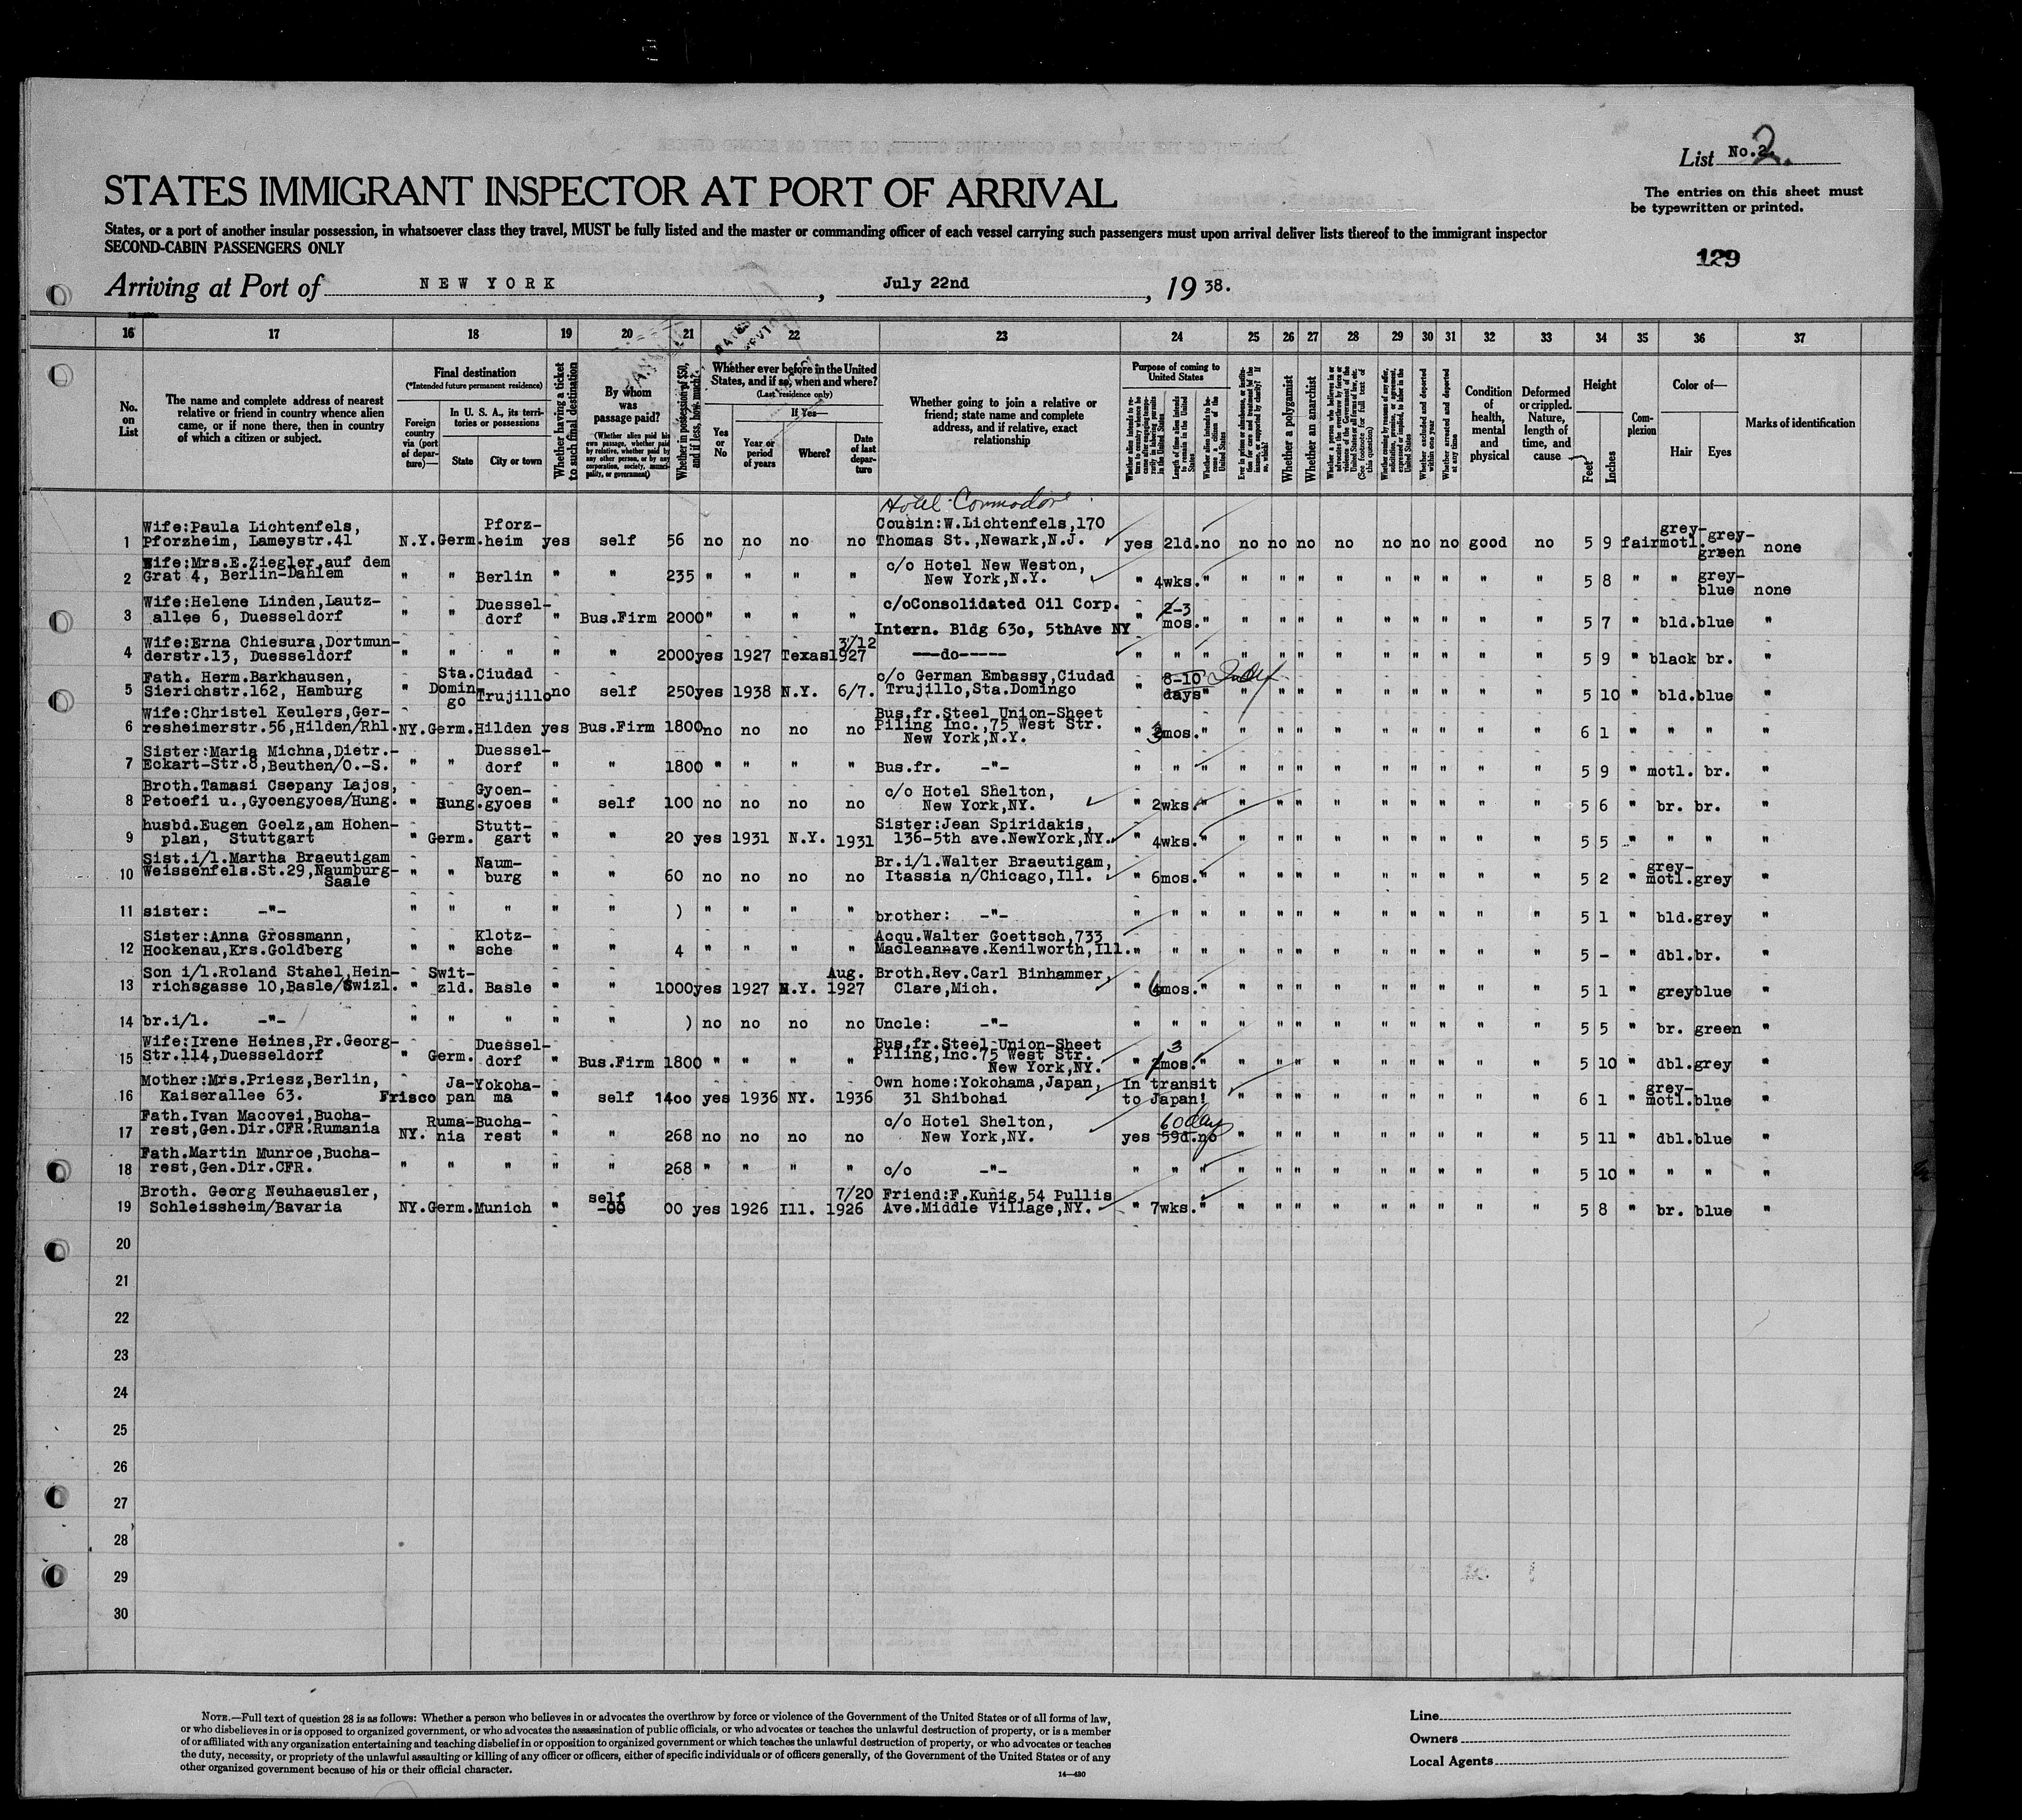 List No.2. 2.
STATES IMMIGRANT INSPECTOR AT PORT OF ARRIVAL
The entries on this sheet must
be typewritten or printed.
States, or a port of another insular possession, in whatsoever class they travel, MUST be fully listed and the master or commanding officer of each vessel carrying such passengers must upon arrival deliver lists thereof to the immigrant inspector
SECOND-CABIN PASSENGERS ONLY
129
Arriving at Port of NEW YORK, July 22nd, 19 38.
16 17 18 19 20 21 22 23 24 25 26 27 28 29 30 31 32 33 34 35 36 37
No. on List
The name and complete address of nearest relative or friend in country whence alien came, or if none there, then in country of which a citizen or subject.
Final destination
(*Intended future permanent residence)
Foreign country via (port of departure)—
In U. S. A., its territories or possessions
State
City or town
Whether having a ticket to such final destination
By whom was passage paid?
(Whether alien paid his own passage, whether paid by relative, whether paid by any other person, or by any corporation, society, municipality, or government)
Whether in possession of $50, and if less, how much?
Whether ever before in the United States, and if so, when and where?
(Last residence only)
Yes or No
If Yes—
Year or period of years
Where?
Date of last departure
Whether going to join a relative or friend; state name and complete address, and if relative, exact relationship
Purpose of coming to United States
Length of time alien intends to remain in the United States
Whether alien intends to become a citizen of the United States
Whether a polygamist
Whether an anarchist
Whether excluded and deported within one year
Whether arrested and deported at any time
Condition of health, mental and physical
Deformed or crippled. Nature, length of time, and cause
Height
Feet
Inches
Complexion
Color of—
Hair
Eyes
Marks of identification
Hotel Commodore
1 Wife:Paula Lichtenfels, Pforzheim, Lameystr.41 N.Y. Germ. Pforz-heim yes self 56 no no no no Cousin:W.Lichtenfels,170 Thomas St.,Newark,N.J. yes 21d. no no no no no no no no good no 5 9 fair grey-motl. grey-green none
2 Wife:Mrs.E.Ziegler,auf dem Grat 4, Berlin-Dahlem " " Berlin " " 235 " " " " c/o Hotel New Weston, New York,N.Y. " 4wks. " " " " " " " " " " 5 8 " " grey-blue none
3 Wife:Helene Linden,Lautz-allee 6, Duesseldorf " " Duessel-dorf " Bus.Firm 2000 " " " " c/oConsolidated Oil Corp. Intern. Bldg 63o, 5thAve NY " 2-3 mos. " " " " " " " " " " 5 7 " bld. blue "
4 Wife:Erna Chiesura,Dortmun-derstr.13, Duesseldorf " " " " " 2000 yes 1927 Texas 3/12 1927 ---do----- " " " " " " " " " " " " 5 9 " black br. "
5 Fath. Herm.Barkhausen, Sierichstr.162, Hamburg " Sta. Domin-go Ciudad Trujillo no self 250 yes 1938 N.Y. 6/7. c/o German Embassy,Ciudad Trujillo,Sta.Domingo " 8-10 days " " " " " " " " " " 5 10 " bld. blue "
6 Wife:Christel Keulers,Ger-resheimerstr.56,Hilden/Rhl. NY. Germ. Hilden yes Bus.Firm 1800 no no no no Bus.fr.Steel Union-Sheet Piling Inc.,75 West Str. New York,N.Y. " 3mos. " " " " " " " " " " 6 1 " " " "
7 Sister:Maria Michna,Dietr.-Eckart-Str.8,Beuthen/O.-S. " " Duessel-dorf " " 1800 " " " " Bus.fr. -"- " " " " " " " " " " " " 5 9 " motl. br. "
8 Broth.Tamasi Csepany Lajos, Petoefi u.,Gyoengyoes/Hung. " Hung. Gyoen-gyoes " self 100 no no no no c/o Hotel Shelton, New York,NY. " 2wks. " " " " " " " " " " 5 6 " br. br. "
9 husbd.Eugen Goelz,am Hohen-plan, Stuttgart " Germ. Stutt-gart " " 20 yes 1931 N.Y. 1931 Sister:Jean Spiridakis, 136-5th ave.NewYork,NY. " 4wks. " " " " " " " " " " 5 5 " " " "
10 Sist.i/l.Martha Braeutigam Weissenfels.St.29,Naumburg-Saale " " Naum-burg " " 60 no no no no Br.i/l.Walter Braeutigam, Itassia n/Chicago,Ill. " 6mos. " " " " " " " " " " 5 2 " grey-motl. grey "
11 sister: -"- " " " " " ) " " " " brother: -"- " " " " " " " " " " " " 5 1 " bld. grey "
12 Sister:Anna Grossmann, Hockenau,Krs.Goldberg " " Klotz-sche " " 4 " " " " Acqu.Walter Goettsch,733 Macleannave.Kenilworth,Ill. " " " " " " " " " " " " 5 - " dbl. br. "
13 Son i/l.Roland Stahel,Hein-richsgasse 10,Basle/Swizl. " Swit-zld. Basle " " 1000 yes 1927 N.Y. Aug. 1927 Broth.Rev.Carl Binhammer, Clare,Mich. " 6mos. " " " " " " " " " " 5 1 " grey blue "
14 br.i/l. -"- " " " " " ) no no no no Uncle: -"- " " " " " " " " " " " " 5 5 " br. green "
15 Wife:Irene Heines,Pr.Georg-Str.114,Duesseldorf " Germ. Duessel-dorf " Bus.Firm 1800 " " " " Bus.fr.Steel-Union-Sheet Piling,Inc.75 West Str. New York,NY. " 3 2mos. " " " " " " " " " " 5 10 " dbl. grey "
16 Mother:Mrs.Priesz,Berlin, Kaiserallee 63. Frisco Ja-pan Yokoha-ma " self 14oo yes 1936 NY. 1936 Own home:Yokohama,Japan, 31 Shibohai In transit to Japan! " " " " " " " " " 6 1 " grey-motl. blue "
17 Fath.Ivan Macovei,Bucha-rest,Gen.Dir.CFR.Rumania NY. Ruma-nia Bucha-rest " " 268 no no no no c/o Hotel Shelton, New York,NY. yes 60 days 59d. no " " " " " " " " " 5 11 " dbl. blue "
18 Fath.Martin Munroe,Bucha-rest,Gen.Dir.CFR. " " " " " 268 " " " " c/o -"- " " " " " " " " " " " " 5 10 " " " "
19 Broth. Georg Neuhaeusler, Schleissheim/Bavaria NY. Germ. Munich " self -00 00 yes 1926 Ill. 7/20 1926 Friend:F.Kunig,54 Pullis Ave.Middle Village,NY. " 7wks. " " " " " " " " " " 5 8 " br. blue "
20
21
22
23
24
25
26
27
28
29
30
NOTE.—Full text of question 28 is as follows: Whether a person who believes in or advocates the overthrow by force or violence of the Government of the United States or of all forms of law,
or who disbelieves in or is opposed to organized government, or who advocates the assassination of public officials, or who advocates or teaches the unlawful destruction of property, or is a member
of or affiliated with any organization entertaining and teaching disbelief in or opposition to organized government or which teaches the unlawful destruction of property, or who advocates or teaches
the duty, necessity, or propriety of the unlawful assaulting or killing of any officer or officers, either of specific individuals or of officers generally, of the Government of the United States or of any
other organized government because of his or their official character.
14—430
Line
Owners
Local Agents